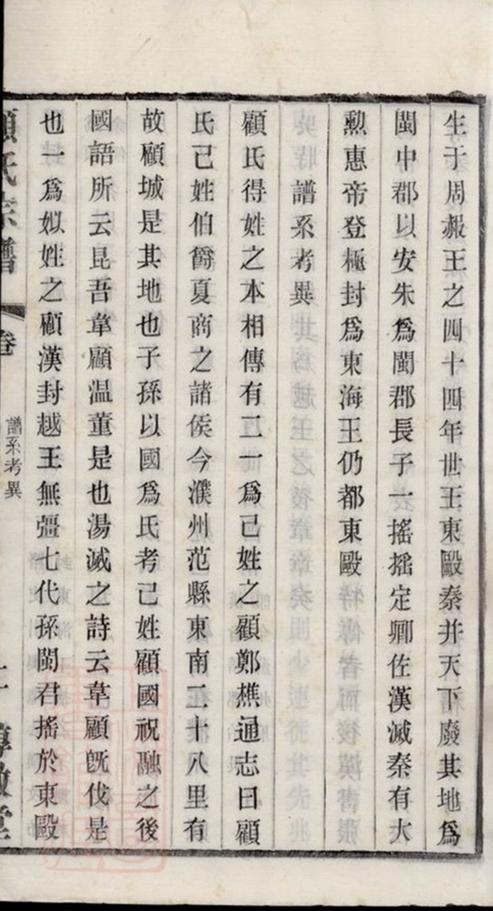 生于周赧王之四十四年世王東毆秦并天下廢其地爲
閩中郡以安朱爲閩郡長子一搖搖定卿佐漢滅秦有大
勲惠帝登極封爲東海王仍都東毆
譜系考異
顧氏得姓之本相傳有二一爲己姓之顧鄭樵通志曰顧
氏己姓伯爵夏商之諸侯今濮州范縣東南二十八里有
故顧城是其地也子孫以國爲氏考己姓顧國祝融之後
國語所云昆吾韋顧温董是也湯滅之詩云韋顧旣伐是
也一爲姒姓之顧漢封越王無彊七代孫閩君搖於東毆
顧氏宗譜
卷
譜系考異